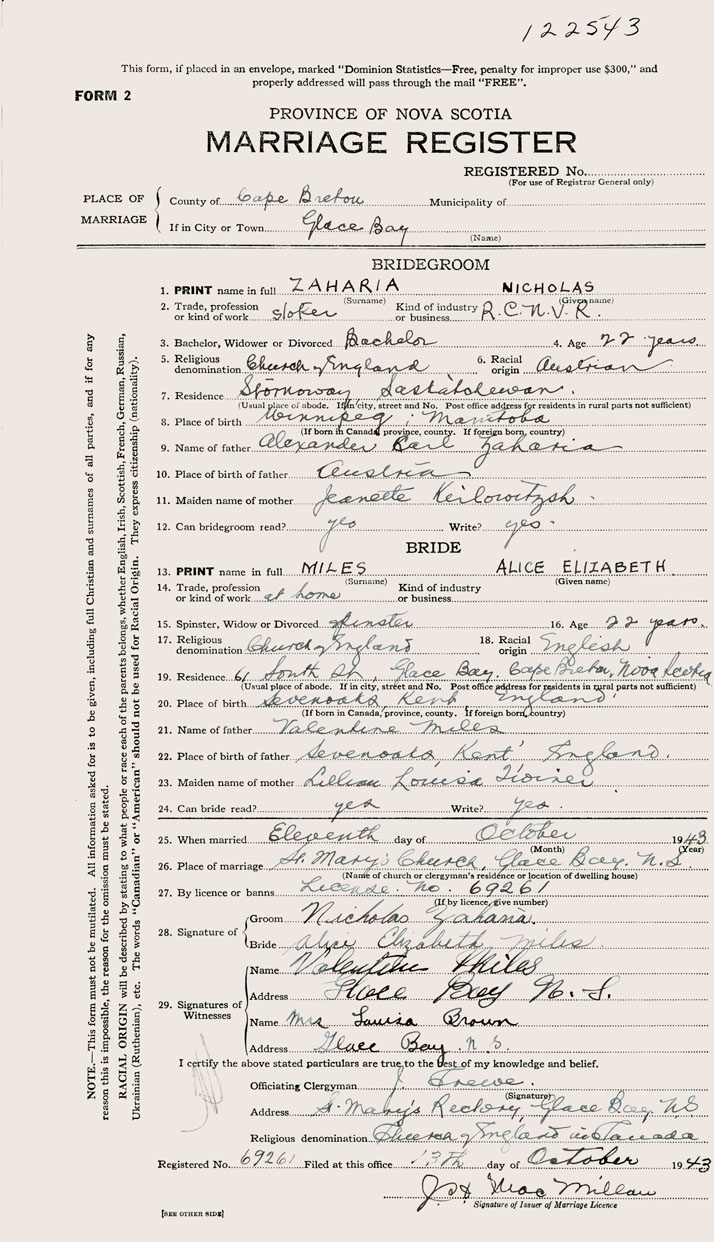 122543
This form, if placed in an envelope, marked “Dominion Statistics—Free, penalty for improper use $300,” and
properly addressed will pass through the mail “FREE”.
FORM 2
PROVINCE OF NOVA SCOTIA
MARRIAGE REGISTER
REGISTERED No.
(For use of Registrar General only)
PLACE OF MARRIAGE
County of Cape Breton Municipality of
If in City or Town Glace Bay
(Name)
BRIDEGROOM
1. PRINT name in full ZAHARIA NICHOLAS
(Surname) (Given name)
2. Trade, profession or kind of work stoker Kind of industry or business R.C.N.V.R.
3. Bachelor, Widower or Divorced Bachelor 4. Age 22 years
5. Religious denomination Church of England 6. Racial origin Austrian
7. Residence Stornoway Saskatchewan.
(Usual place of abode. If in city, street and No. Post office address for residents in rural parts not sufficient)
8. Place of birth Winnipeg, Manitoba
(If born in Canada, province, county. If foreign born, country)
9. Name of father Alexander Carl Zaharia
10. Place of birth of father Austria
11. Maiden name of mother Jeanette
12. Can bridegroom read? yes Write? yes.
BRIDE
13. PRINT name in full MILES ALICE ELIZABETH.
(Surname) (Given name)
14. Trade, profession or kind of work at home Kind of industry or business
15. Spinster, Widow or Divorced Spinster 16. Age 22 years.
17. Religious denomination Church of England 18. Racial origin English
19. Residence 61 South St, Glace Bay. Cape Breton, Nova Scotia
(Usual place of abode. If in city, street and No. Post office address for residents in rural parts not sufficient)
20. Place of birth Sevenoaks, Kent England
(If born in Canada, province, county. If foreign born, country)
21. Name of father Valentine Miles
22. Place of birth of father Sevenoaks, Kent England.
23. Maiden name of mother Lillian Louisa
24. Can bride read? yes Write? yes.
25. When married Eleventh day of October 1943
(Month) (Year)
26. Place of marriage St. Mary's Church, Glace Bay. N.S.
(Name of church or clergyman's residence or location of dwelling house)
27. By licence or banns License. No. 69261
(If by licence, give number)
28. Signature of
Groom Nicholas Zaharia.
Bride Alice Elizabeth Miles
29. Signatures of Witnesses
Name Valentine Miles
Address Glace Bay N.S.
Name Mrs Louisa Brown
Address Glace Bay. N.S.
I certify the above stated particulars are true to the best of my knowledge and belief.
Officiating Clergyman J.
(Signature)
Address St. Mary's Rectory, Glace Bay, NS
Religious denomination Church of England in Canada
Registered No. 69261 Filed at this office 13th day of October 1943
J. H. MacMillan
Signature of Issuer of Marriage Licence
[SEE OTHER SIDE]
NOTE.—This form must not be mutilated. All information asked for is to be given, including full Christian and surnames of all parties, and if for any
reason this is impossible, the reason for the omission must be stated.
RACIAL ORIGIN will be described by stating to what people or race each of the parents belongs, whether English, Irish, Scottish, French, German, Russian,
Ukrainian (Ruthenian), etc. The words “Canadian” or “American” should not be used for Racial Origin. They express citizenship (nationality).